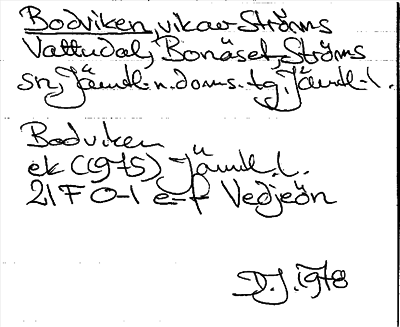 Bodviken, vik av Ströms
Vattudal, Bonäset, Ströms
sn, Jämtl. n. doms. tg, Jämtl. l.
Bodviken
ek (1975) Jämtl. l.
21 F 0-1 e-f Vedjeön
D.J. 1978